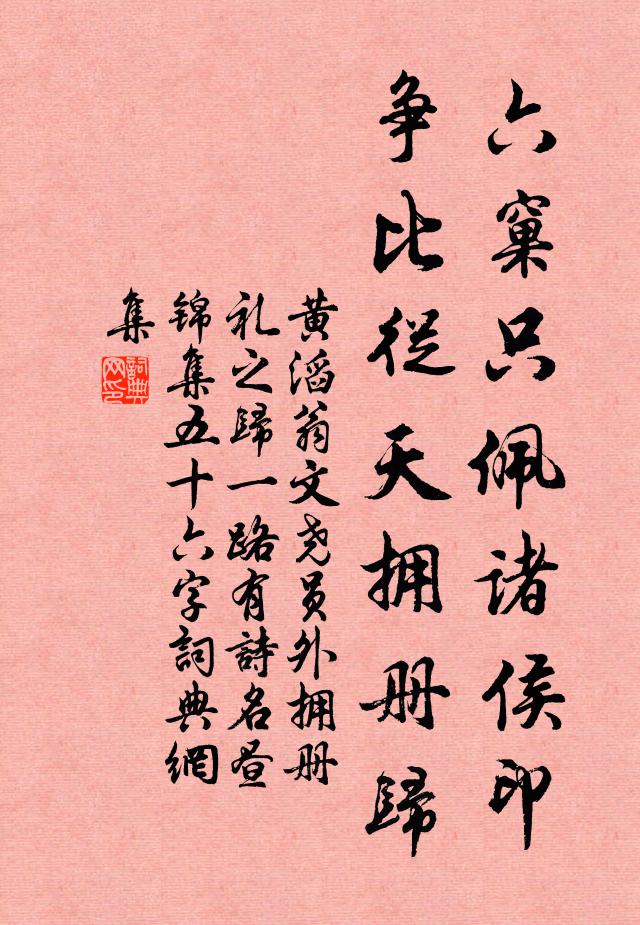 六窠只佩诸侯印
争比從天拥册歸
黄滔翁文尧员外拥册
礼之歸一路有詩名昼
锦集五十六字詞典網
集
詞典
网印